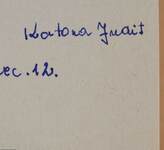 Katona Judit
ec. 12.